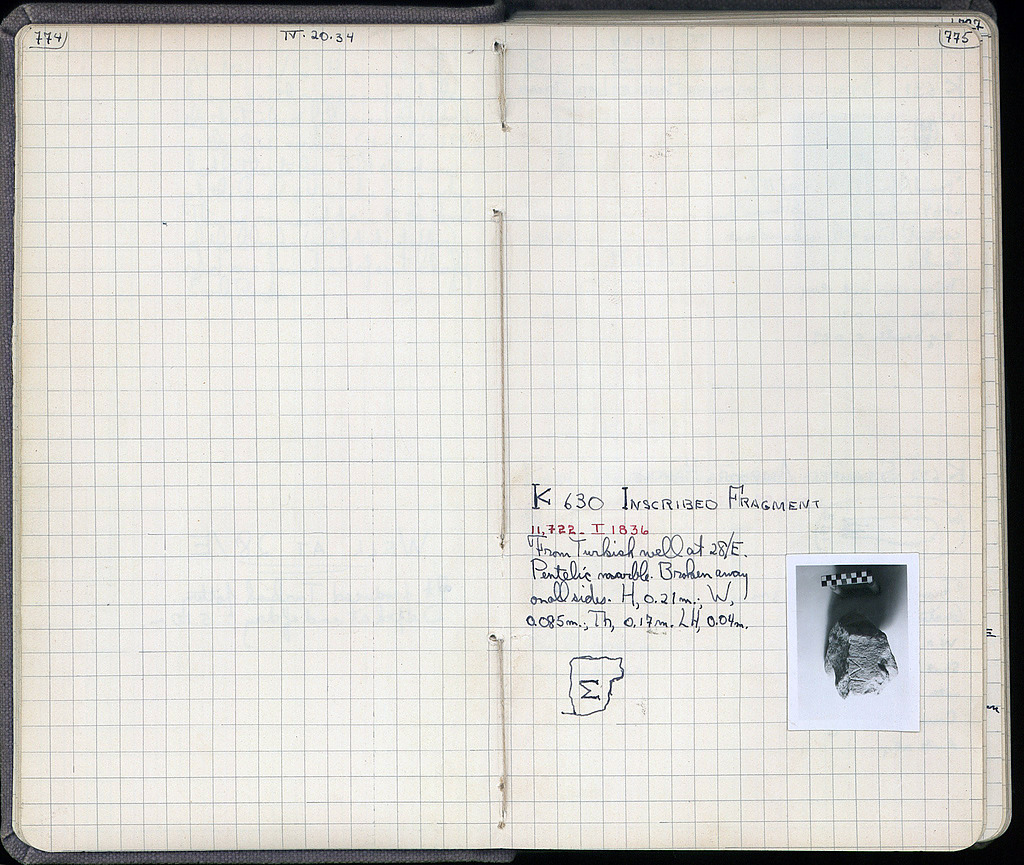 774
IV. 20.34
775
K 630 INSCRIBED FRAGMENT
11,722 - I 1836
From Turkish well at 28/E.
Pentelic marble. Broken away
on all sides. H, 0.21m.; W,
0.085m.; Th, 0.17m. LH, 0.04m.
Σ